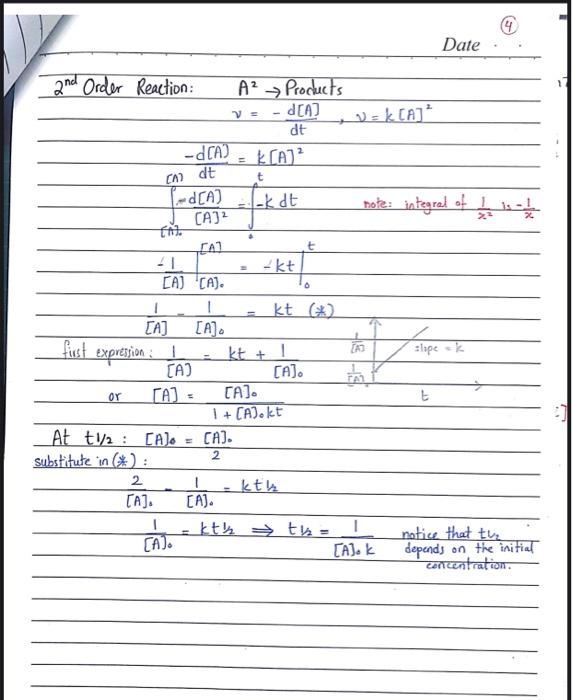 ④
Date
2nd Order Reaction: A² → Products
v = - d[A]/dt , v = k[A]²
-d[A]/dt = k[A]²
∫_{[A]₀}^{[A]} -d[A]/[A]² = ∫_{0}^{t} -k dt
note: integral of 1/x² is -1/x
-1/[A] |_{[A]₀}^{[A]} = -kt |_{0}^{t}
1/[A] - 1/[A]₀ = kt (*)
first expression: 1/[A] = kt + 1/[A]₀
1/[A]
slope = k
1/[A]
t
or [A] = [A]₀/1 + [A]₀kt
At t1/2 : [A]₀ = [A]₀/2
substitute in (*) :
2/[A]₀ - 1/[A]₀ = kt½
1/[A]₀ = kt½ ⟹ t½ = 1/[A]₀ k
notice that t1/2
depends on the initial
concentration.